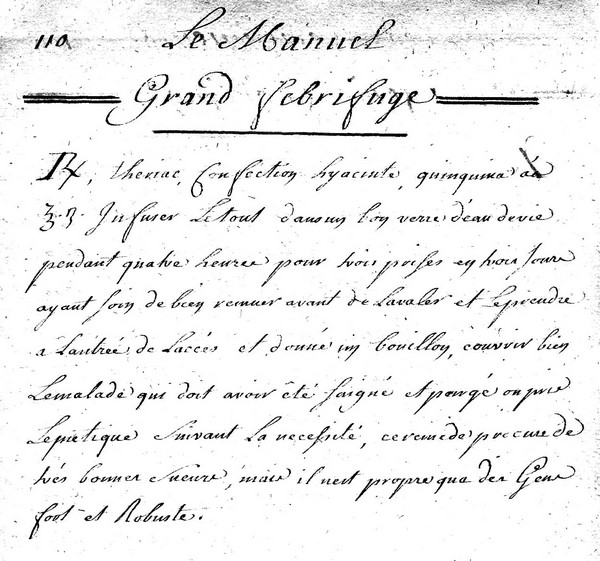 110 Le Manuel
Grand febrifuge
℞, theriac, Confection hyacinte, quinquina aâ
ʒ.ʒ. Infuser Le tout dans un bon verre d'eau de vie
pendant quatre heures pour trois prises en trois Jours
ayant soin de bien remuer avant de Lavaler et Leprendre
a Lantrée de Laccés et donné un bouillon, couvrir bien
Lemalade qui doit avoir été saigné et pourgé ou prie
Lepietique suivant La necessité, ce remede procure de
trés bonnes sueurs, mais il nest propre qua des Gens
fort et Robuste.